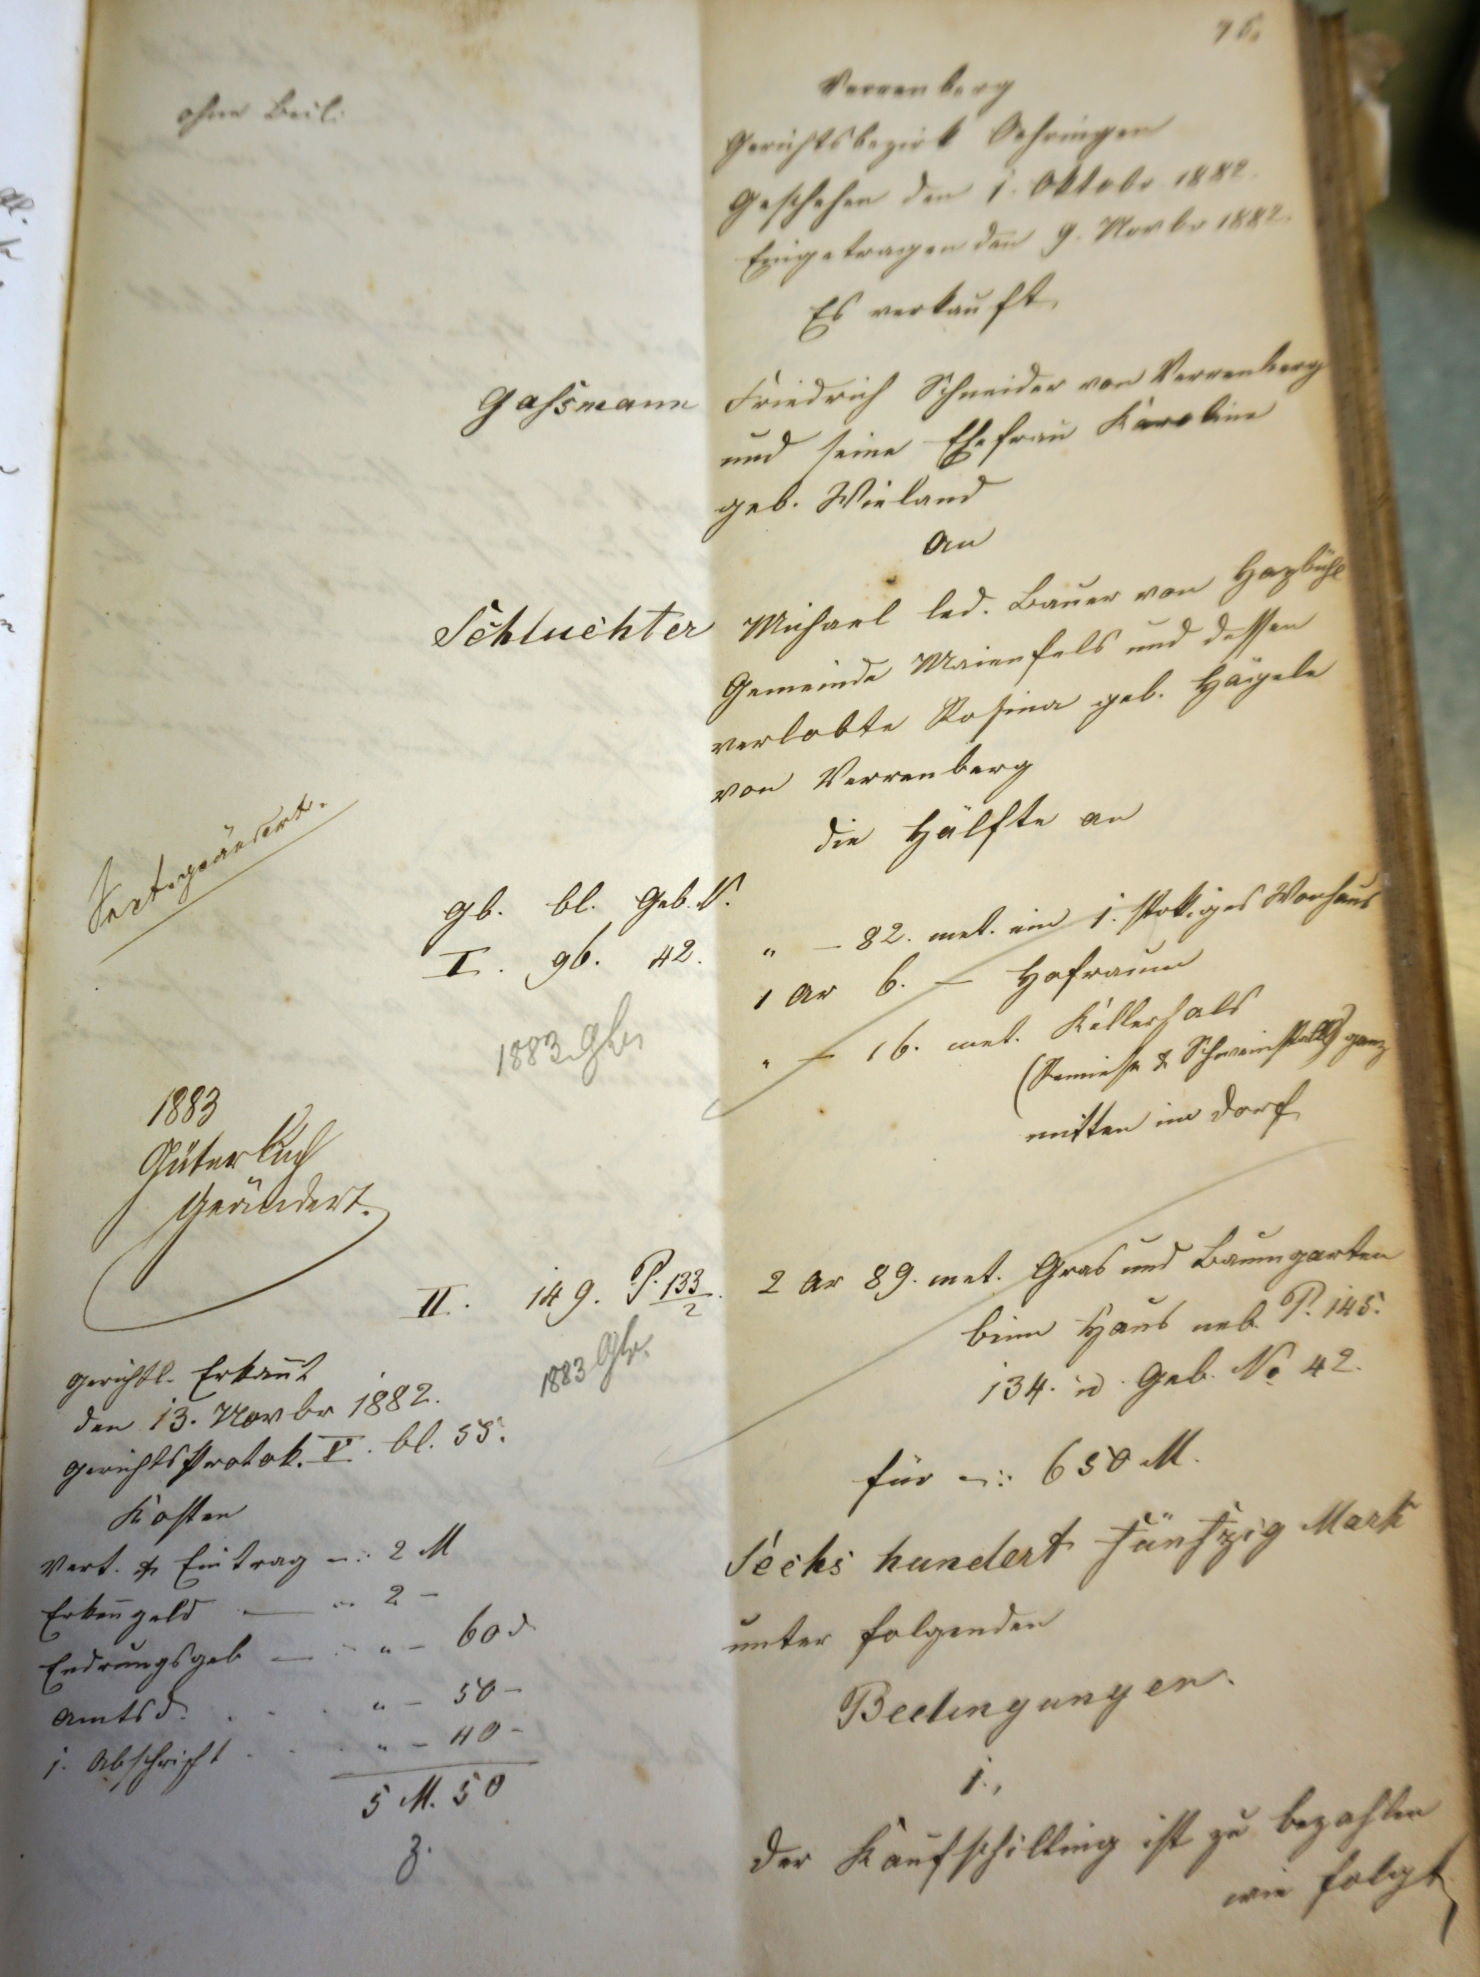 76.
ohne Beil.
Verrenberg
Gerichtsbezirk Oehringen
Geschehen den 1. Oktobr 1882.
Eingetragen den 9. Novbr 1882.
Es verkauft
Gaßmann Friedrich Schneider von Verrenberg
und seine Ehefrau Karoline
geb. Wieland
an
Schluchter Michael led. Bauer von
Gemeinde Maienfels und dessen
verlobte Rosina geb. Hägele
von Verrenberg
die Hälfte an
geändert.
Gb. bl. Geb. N.
I. 96. 42. " – 82. met. ein 1. stokiges Wonhaus
1 Ar 6. – Hofraum
" – 16. met. Kellerhals
(Remise & Schweinställe) ganz
mitten im Dorf
1883
1883
Güterbuch
Geändert.
II. 149. P. 133/2. 2 Ar 89. met. Gras und Baumgarten
beim Haus neb. P. 145.
134. u. Geb. No 42.
1883
gerichtl. Erkannt
den 13. Novbr 1882.
Gerichts Protok. V. bl. 55.
für –: 650 M.
Sechs hundert fünfzig Mark
unter folgenden
Bedingungen.
1.,
der Kaufschilling ist zu bezahlen
wie folgt
Kosten
Vert. & Eintrag –: 2 M
Erkenngeld – " 2 –
– " – 60 d
Amtsd. . . . " – 50 –
1. Abschrift . . " – 40 –
5 M. 50
Z.